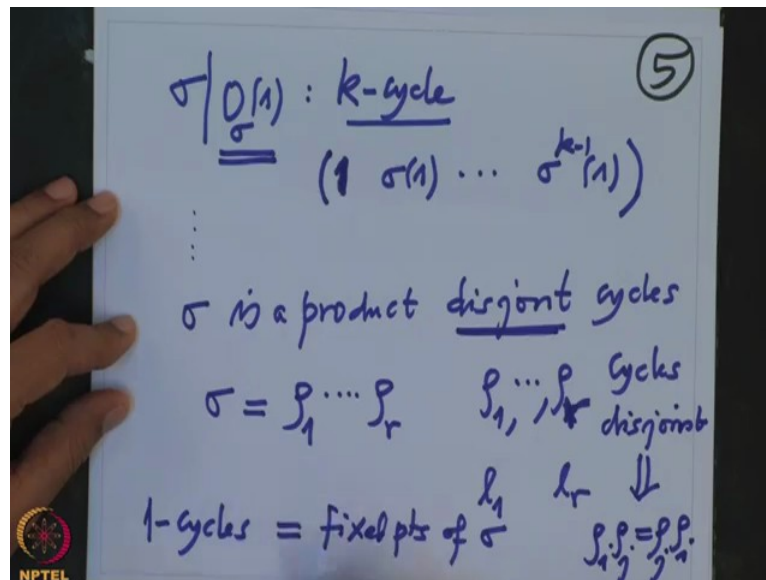 5
σ|O_σ(1) : k-cycle
(1 σ(1) ⋯ σ^{k-1}(1))
⋮
σ is a product disjoint cycles
σ = ρ_1 ⋯ ρ_r ρ_1, ⋯, ρ_r cycles
disjoint
l_1 l_r ⇓
1-cycles = fixed pts of σ ρ_i ρ_j = ρ_j ρ_i
NPTEL